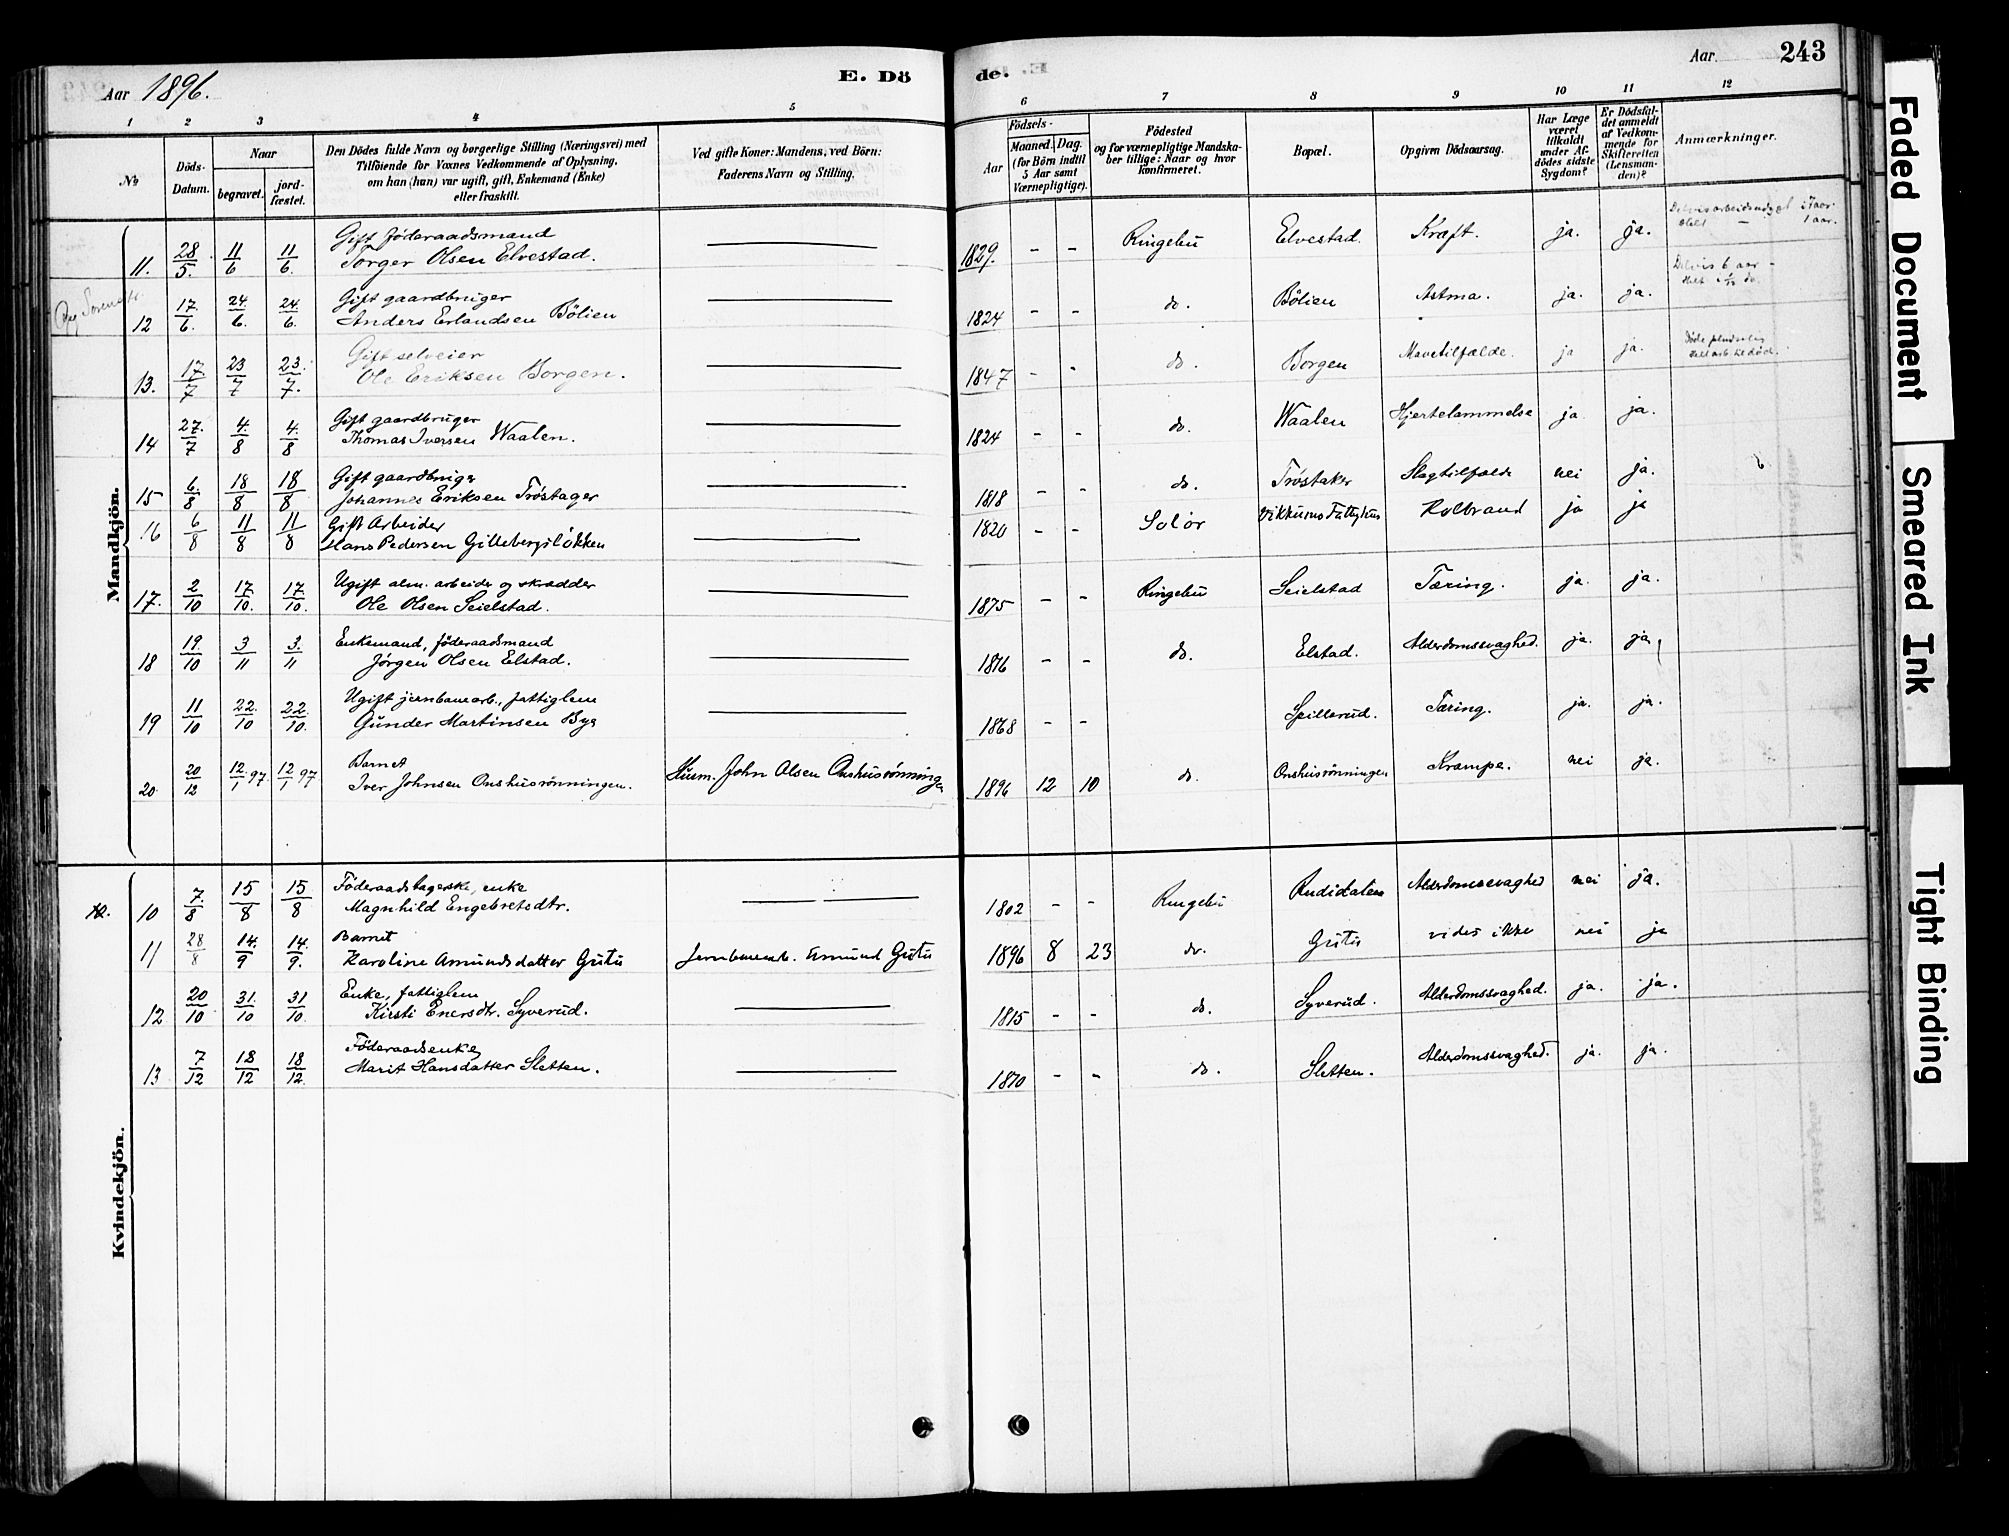 Aar 1896.
E. Dö
de.
Aar.
243
1 2 3 4 5 6 7 8 9 10 11 12
No
Döds-
Datum.
Naar
begravet.
jord-
fæstet.
Den Dödes fulde Navn og borgerlige Stilling (Næringsvei) med
Tilföiende for Voxnes Vedkommende af Oplysning,
om han (hun) var ugift, gift, Enkemand (Enke)
eller fraskilt.
Ved gifte Koner: Mandens, ved Börn:
Faderens Navn og Stilling.
Födsels-
Aar
Maaned. Dag.
(for Börn indtil
5 Aar samt
Værnepligtige).
Födested
og for værnepligtige Mandska-
ber tillige: Naar og hvor
konfirmeret.
Bopæl.
Opgiven Dödsaarsag.
Har Læge
været
tilkaldt
under Af-
dödes sidste
Sygdom?
Er Dödsfal-
det anmeldt
af Vedkom-
mende for
Skifteretten
(Lensman-
den)?
Anmærkninger.
Mandkjön.
11. 28/5. 11/6 11/6. Gift föderaadsmand
Torger Olsen Elvestad. 1829. - - Ringebu Elvestad. Kræft. ja. ja.
12 17/6. 24./6. 24./6. Gift gaardbruger
Anders Erlandsen Bölien 1824 - - do. Bölien Astma. ja. ja.
13. 17/7 23/7 23./7. Gift selveier
Ole Eriksen Borgen. 1847 - - do. Borgen Mavetilfælde. ja ja. Døde pludselig
14 27./7 4./8 4./8 Gift gaardbruger
Thomas Iversen Waalen. 1824 - - do. Waalen Hjertelammelse ja ja.
15 6./8 18/8 18/8 Gift gaardbruger
Johannes Eriksen Tröstager 1818 - - do. Tröstaker Slagtilfælde nei ja.
16 6/8 11/8 11/8 Gift Arbeider
Hans Pedersen Gillebergslökken 1820 - - Solør Fattighus Kolbrand ja ja
17. 2/10 17./10. 17./10. Ugift alm. arbeider og skrædder
Ole Olsen Seielstad. 1875 - - Ringebu Seielstad Tæring. ja. ja.
18 19./10 3/11 3./11 Enkemand, föderaadsmand
Jörgen Olsen Elstad. 1816 - - do. Elstad. Alderdomssvaghed. ja. ja
19 11/10 22./10 22./10. Ugift jernbanearb., fattiglem
Gunder Martinsen Bye 1868 - - Spillerud. Tæring. ja. ja.
20 20/12 12./1 97 12/1 97 Barnet
Iver Johnsen Onshusrönningen. Husm. John Olsen Onshusrönningen 1896 12 10 do. Onshusrönningen Krampe. nei ja.
Kvindekjön.
10 7./8 15/8 15/8 Föderaadstagerske, enke
Magnhild Engebretsdtr. 1802 - - Ringebu Rudidalen Alderdomssvaghed nei ja.
11 28/8 14./9 14./9. Barnet
Karoline Amundsdatter Gutu Jernbanearb. Amund Gutu 1896 8 23 do. Gutu vides ikke nei ja
12 20/10 31./10 31/10. Enke, fattiglem
Kirsti Enersdtr. Syverud. 1815 - - do. Syverud. Alderdomssvaghed. ja. ja.
13 7/12 18/12 18/12. Föderaadsenke
Marit Hansdatter Sletten. 1810 - - do. Sletten. Alderdomssvaghed. ja. ja.
Faded Document
Smeared Ink
Tight Binding